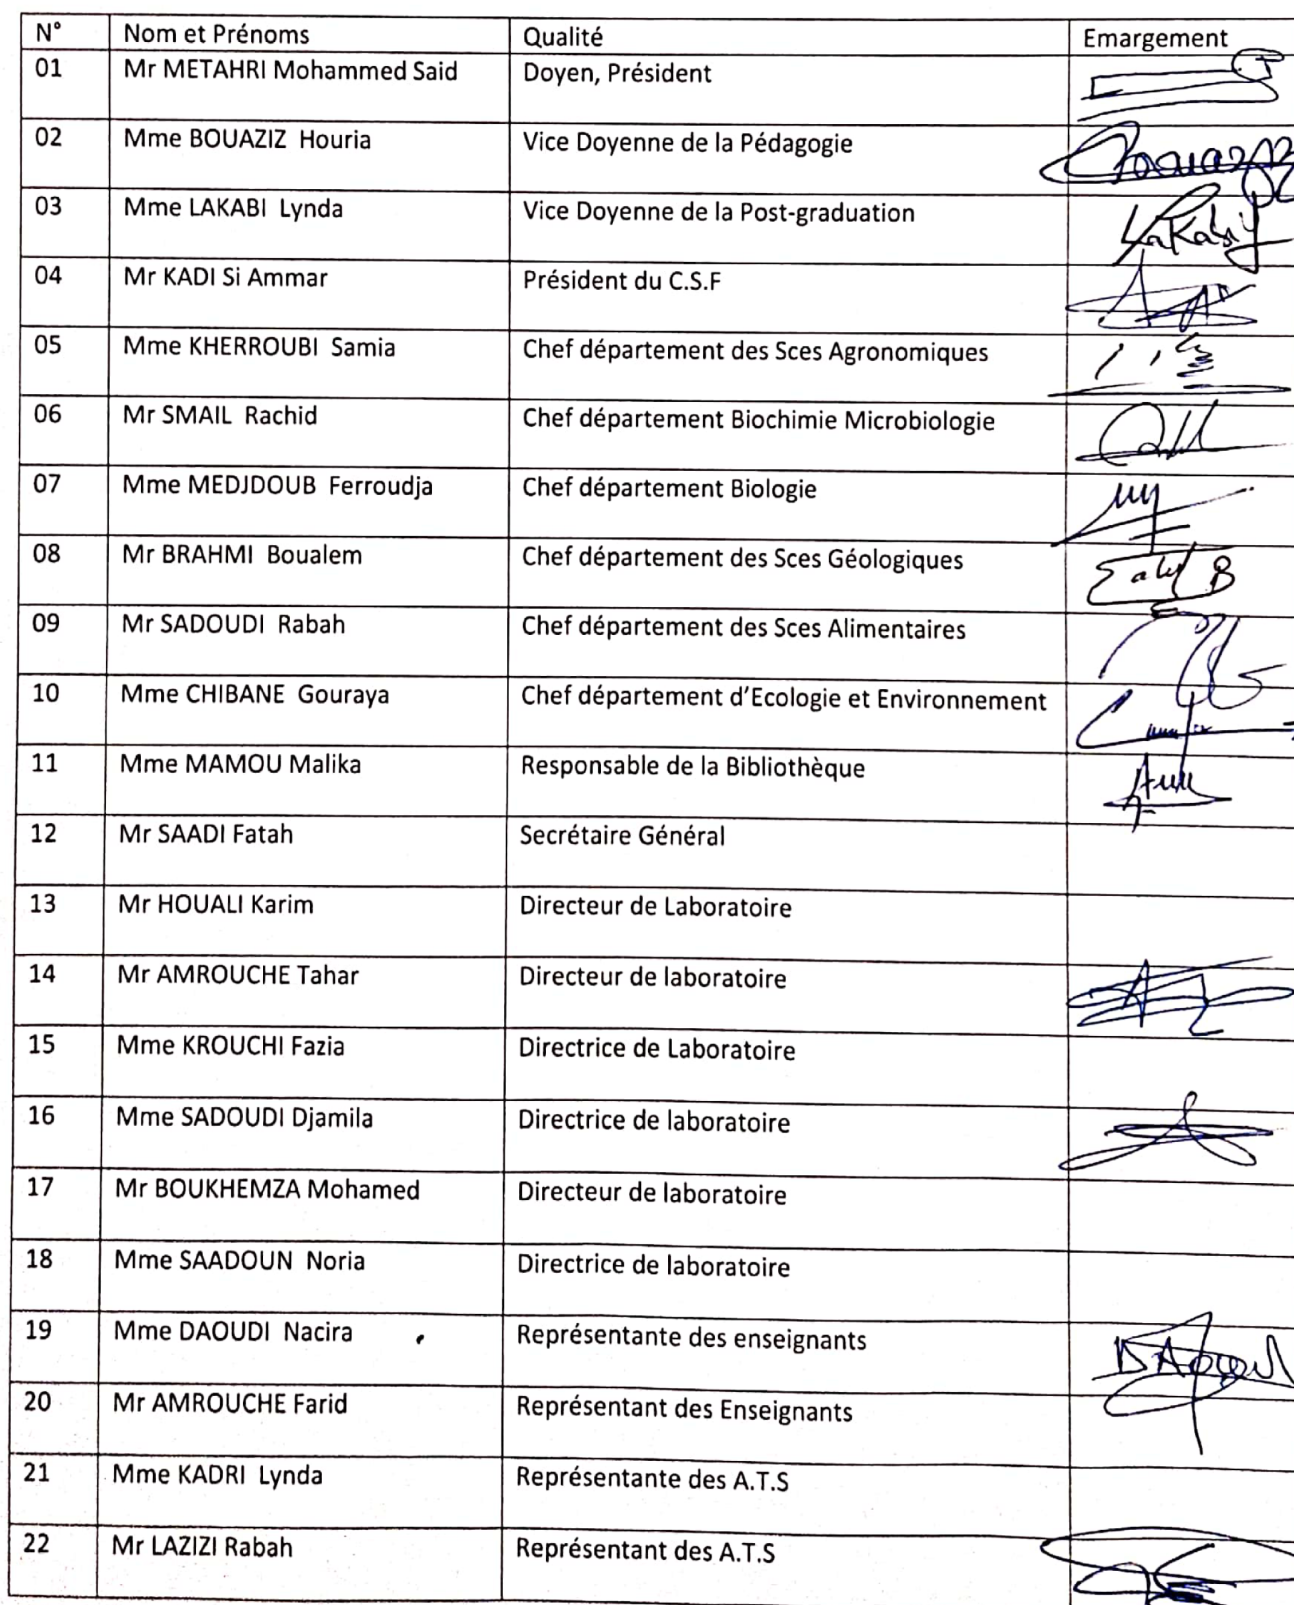 N° Nom et Prénoms Qualité Emargement
01 Mr METAHRI Mohammed Said Doyen, Président
02 Mme BOUAZIZ Houria Vice Doyenne de la Pédagogie
03 Mme LAKABI Lynda Vice Doyenne de la Post-graduation
04 Mr KADI Si Ammar Président du C.S.F
05 Mme KHERROUBI Samia Chef département des Sces Agronomiques
06 Mr SMAIL Rachid Chef département Biochimie Microbiologie
07 Mme MEDJDOUB Ferroudja Chef département Biologie
08 Mr BRAHMI Boualem Chef département des Sces Géologiques
09 Mr SADOUDI Rabah Chef département des Sces Alimentaires
10 Mme CHIBANE Gouraya Chef département d'Ecologie et Environnement
11 Mme MAMOU Malika Responsable de la Bibliothèque
12 Mr SAADI Fatah Secrétaire Général
13 Mr HOUALI Karim Directeur de Laboratoire
14 Mr AMROUCHE Tahar Directeur de laboratoire
15 Mme KROUCHI Fazia Directrice de Laboratoire
16 Mme SADOUDI Djamila Directrice de laboratoire
17 Mr BOUKHEMZA Mohamed Directeur de laboratoire
18 Mme SAADOUN Noria Directrice de laboratoire
19 Mme DAOUDI Nacira Représentante des enseignants
20 Mr AMROUCHE Farid Représentant des Enseignants
21 Mme KADRI Lynda Représentante des A.T.S
22 Mr LAZIZI Rabah Représentant des A.T.S